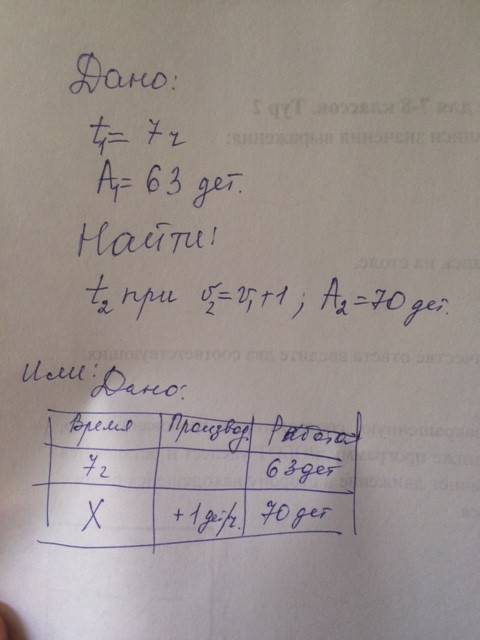 Дано:
t₁ = 7ч
A₁ = 63 дет.
Найти:
t₂ при v₂ = v₁ + 1 ; A₂ = 70 дет.
Или: Дано:
Время Производ. Работа
7ч 63 дет
X + 1 дет/ч. 70 дет
для 7-8 классов. Тур 2
значения выражения:
на столе.
ответа введите два